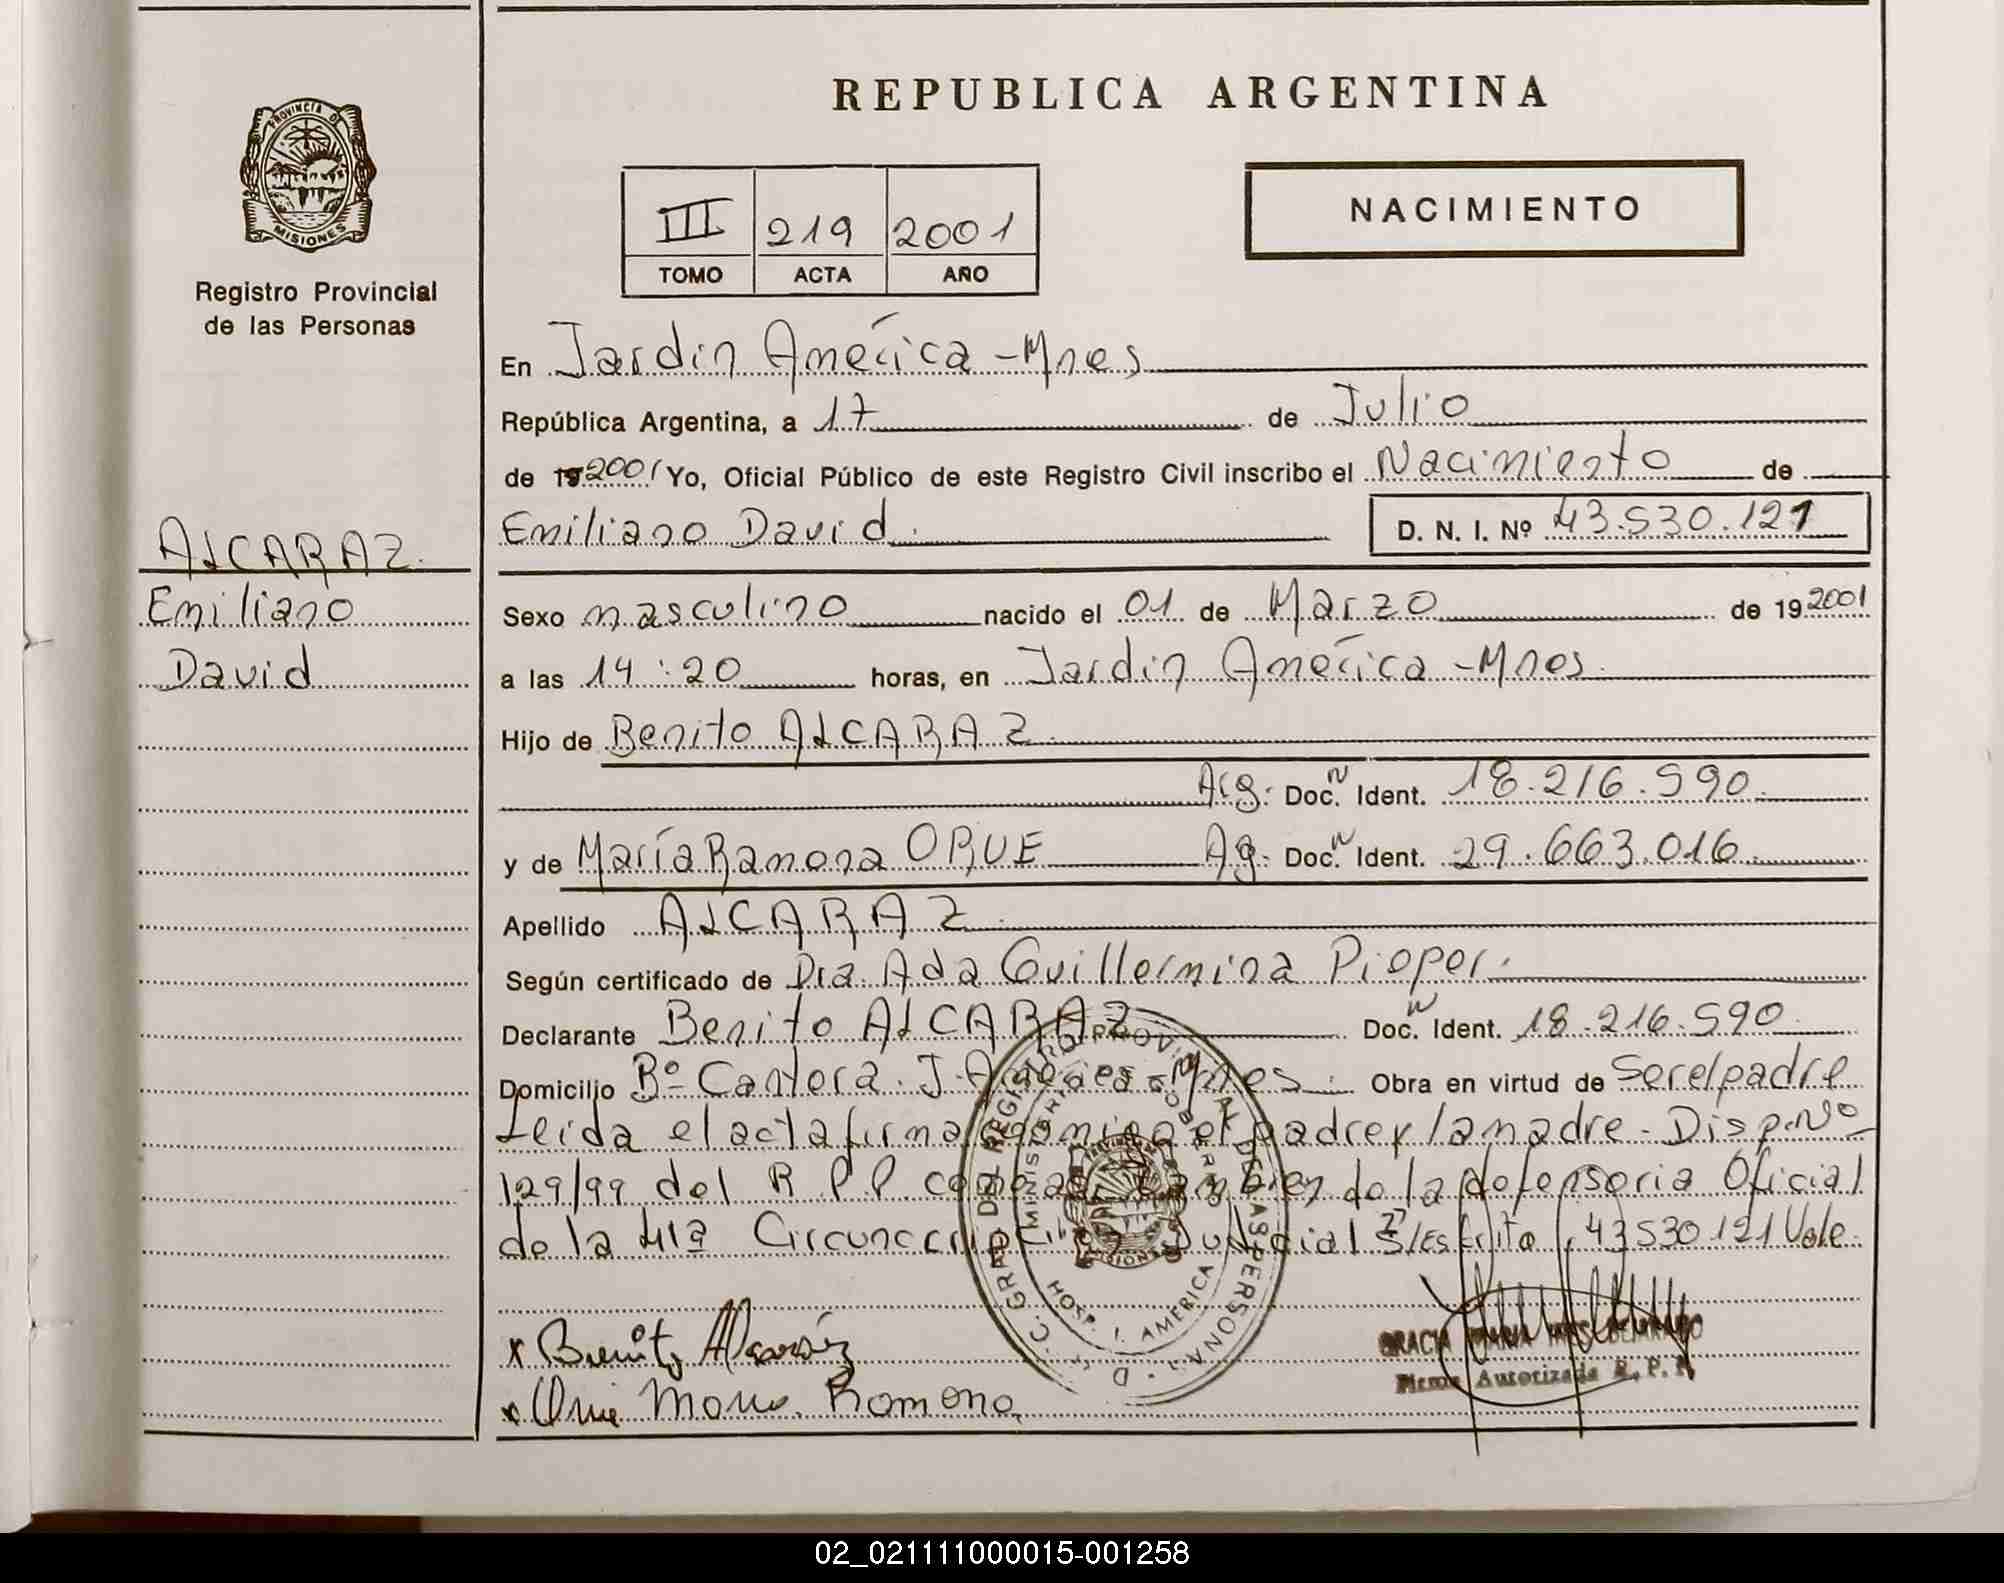 REPUBLICA ARGENTINA
PROVINCIA DE
MISIONES
Registro Provincial
de las Personas
III 219 2001
TOMO ACTA AÑO
NACIMIENTO
En Jardin América - Mnes
República Argentina, a 17 de Julio
de 19 2001 Yo, Oficial Público de este Registro Civil inscribo el Nacimiento de
Emiliano David. D. N. I. Nº 43.530.121
ALCARAZ.
Emiliano
David
Sexo masculino nacido el 01 de Marzo de 19 2001
a las 14:20 horas, en Jardin América - Mnes.
Hijo de Benito ALCARAZ.
Arg. Doc. N Ident. 18.216.590.
y de María Ramona ORUE Ag. Doc. N Ident. 29.663.016.
Apellido ALCARAZ.
Según certificado de Dra. Ada Guillermina Pieper.
Declarante Benito ALCARAZ Doc. N Ident. 18.216.590.
Domicilio Bº Cantera. J. América - Mnes. Obra en virtud de Ser el padre
Leida el acta firma conmigo el padre y la madre. Disp. Nº
129/99 del R.P.P. como así tambien de la defensoria Oficial
de la 4ta Circunscripción Judicial S/Escrito 43530121 Vale.
D. G. C. GRAL. DEL REGISTRO PROVINCIAL DE LAS PERSONAS
MINISTERIO DE GOBIERNO
MISIONES
HOSP. J. AMERICA
x Benito Alcaráz
x Orue Maria Ramona
GRACIA MARIA INES
Firma Autorizada R. P. P.
02_021111000015-001258